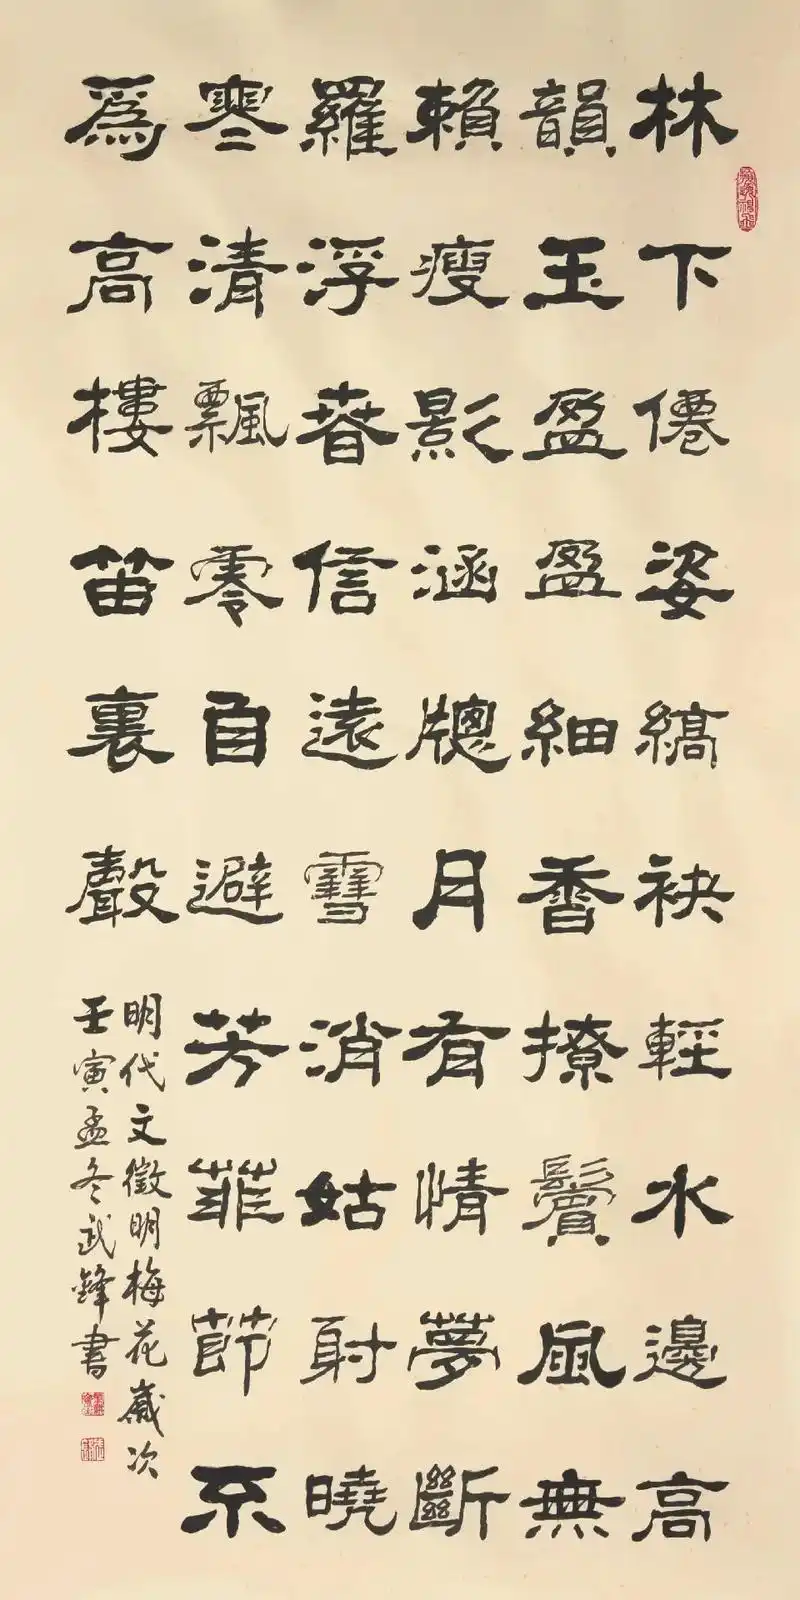 林下僊姿縞袂輕水邊高
韻玉盈盈細香撩鬢風無
賴瘦影涵牕月有情夢斷
羅浮春信遠雪消姑射曉
寒清飄零自避芳菲節不
為高樓笛裏聲
明代文徵明梅花歲次
壬寅孟冬武鋒書